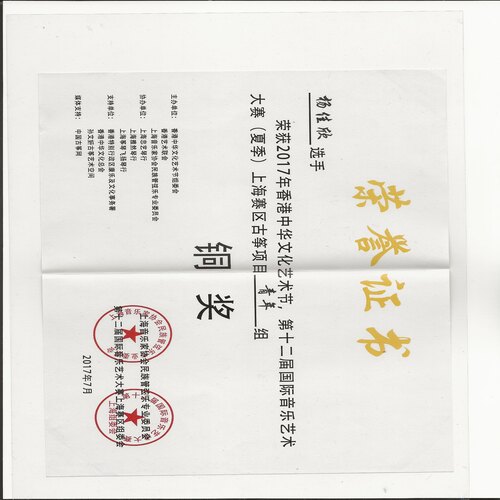 荣誉证书
杨佳欣 选手
荣获2017年香港中华文化艺术节，第十二届国际音乐艺术
大赛（夏季）上海赛区古筝项目 青年 组
铜 奖
主办单位： 香港中华文化艺术节组委会
香港艺术联会
上海音乐家协会民族管弦乐专业委员会
协办单位： 上海忠艺琴行
上海雅然琴行
上海筝琴飞扬琴行
支持单位： 香港特别行政区康乐及文化事务署
香港中华文化总会
孙文妍古筝艺术空间
媒体支持： 中国古筝网
上海音乐家协会民族管弦乐专业委员会
第十二届国际音乐艺术大赛上海赛区组委会
2017年7月